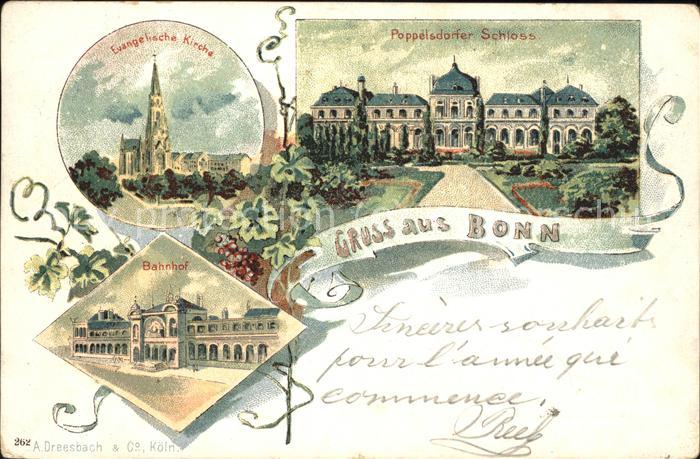 Evangelische Kirche
Poppelsdorfer Schloss.
GRUSS aus BONN
Bahnhof
Sincères souhaits
pour l'année qui
commence.
262 A. Dreesbach & Co, Köln.